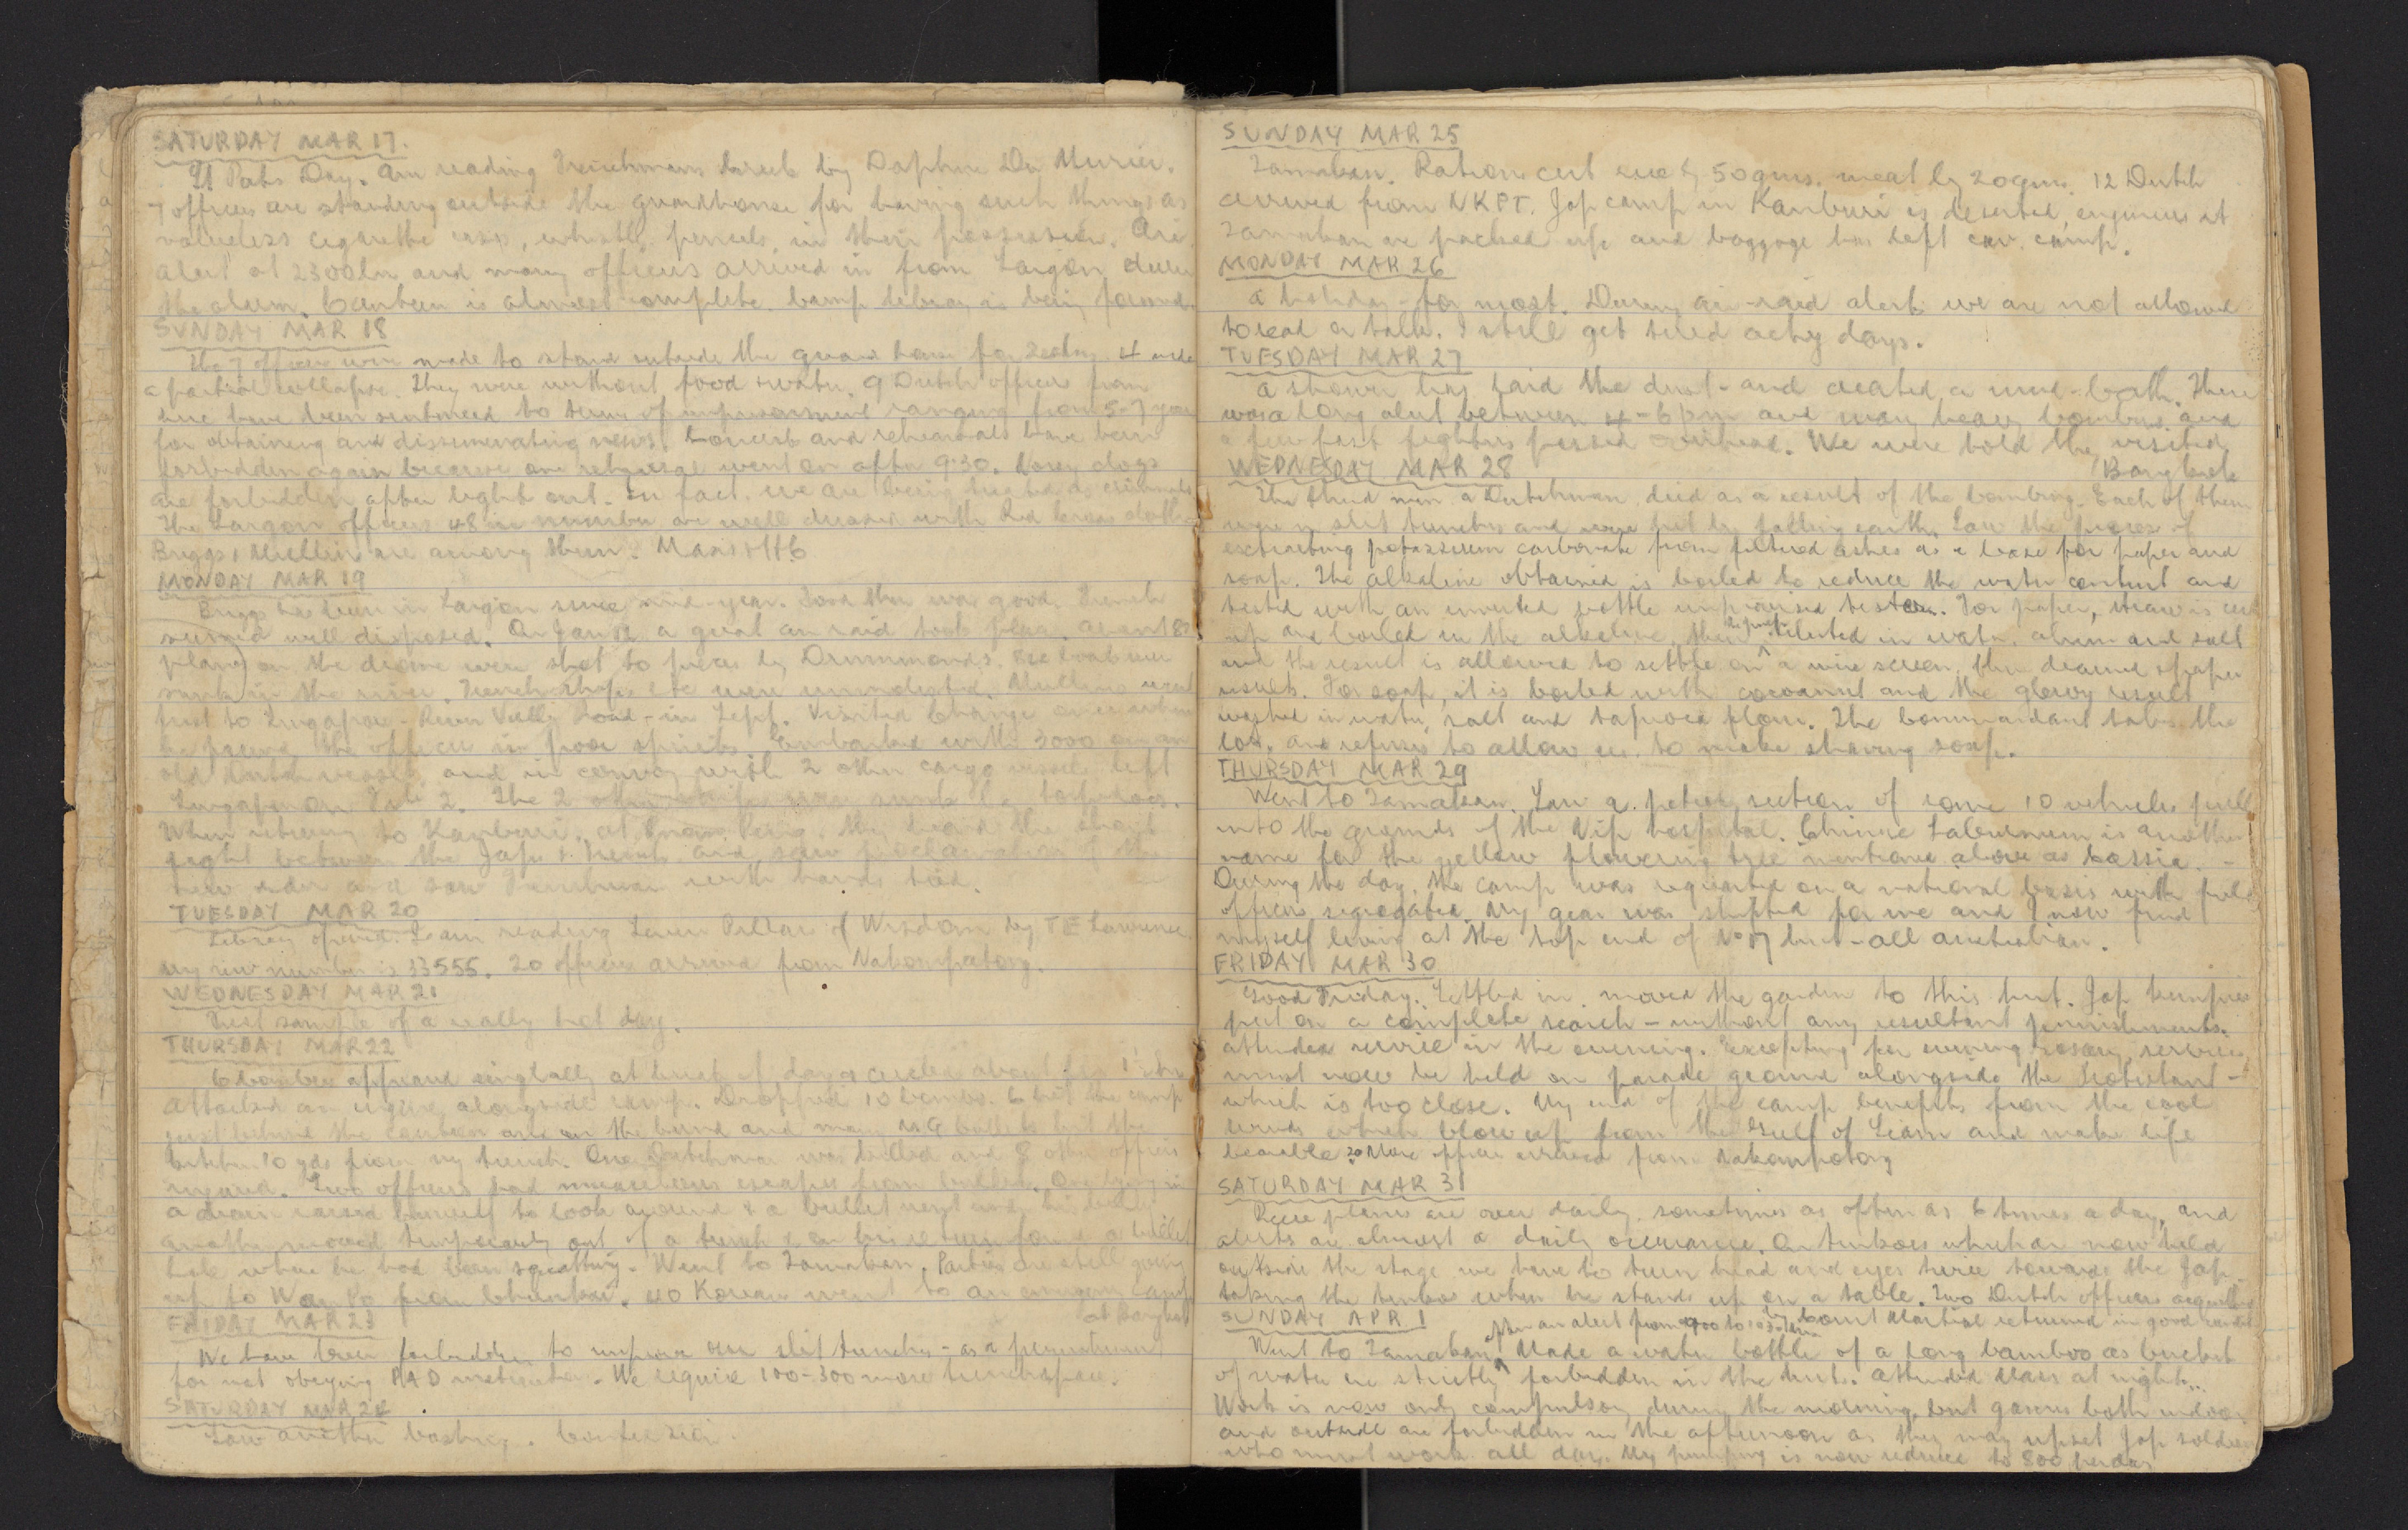 SATURDAY MAR 17.
St Pats Day. Am reading Frenchmans Creek by Daphne Du Murier.
7 officers are standing outside the guardhouse for having such things as
valueless cigarette cases, whistle, pencils, in their possession. Air
alert at 2300hr and many officers arrived in from Saigon during
the alarm. Canteen is almost complete. Camp library is being formed.
SUNDAY MAR 18
The 7 officers were made to stand outside the guard house for 2 days 4 made
a partial collapse. They were without food & water. 9 Dutch officers from
here have been sentenced to terms of imprisonment ranging from 5-7 years
for obtaining and disseminating news. Concerts and rehearsals have been
forbidden again because one rehearsal went on after 9:30.
are forbidden after light out. In fact, we are being treated as criminals
The Saigon officers 48 in number are well dressed with Red Cross clothing
Briggs & Mullin are among them. Mass
MONDAY MAR 19
Briggs has been in Saigon since mid-year. Food there was good. French
seemed well disposed. On Jan 12 a great air raid took place. about 80
planes on the drome were shot to pieces by Drummonds. boats were
sunk in the river. French ships etc were unmolested. Mullins went
first to Singapore - River Vally Road - in Sept. Visited Change
he found the officers in poor spirits. Embarked with 3000 on an
old Dutch vessel and in convoy with 2 other cargo vessels left
Singapore on Feb 2. The 2 other were sunk by torpedoes.
When returning to Kanburi, at Pnom Peng, they heard the short
fight between the Japs & French and saw proclamation of the
new order and saw Frenchman with hands tied.
TUESDAY MAR 20
Library opened. I am reading Seven Pillars of Wisdom by TE Lawrence.
My new number is 33555. 20 officers arrived from Nakompatong.
WEDNESDAY MAR 21
First sample of a really hot day.
THURSDAY MAR 22
6 bombers appeared singly at break of day & circled about
Attacked an engine alongside camp. Dropped 10 bombs. 6 hit the camp
just behind the canteen and on the bund and many MG bullets hit the
kitchen 10 yds from my trench. One Dutchman was killed and 8 other officers
injured. Two officers had miraculous escapes from bullets. One lying in
a drain raised himself to look around & a bullet went under his body
another moved temporarily out of a trench & on his return found a bullet
hole where he had been squatting. Went to Tamakan. Parties are still going
up to Wan Po from Chunkai. 40 Koreans went to an camp
at Bangkok
FRIDAY MAR 23
We have been forbidden to improve our slit trenches - as a punishment
for not obeying PAD instruction. We require 100-300 more trenchspace.
SATURDAY MAR 24
Saw another bashing. Confession.
SUNDAY MAR 25
Tamakan. Rations cut rice by 50gms. meat by 20gms. 12 Dutch
arrived from NKPT. Jap camp in Kanburi is deserted, engineers at
Tamakan are packed up and baggage has left cav. camp.
MONDAY MAR 26
A holiday - for most. During air-raid alerts we are not allowed
to read or talk. I still get tired achy days.
TUESDAY MAR 27
A shower has laid the dust - and created a mud-bath. There
was a long alert between 4-6pm and many heavy bombers and
a few fast fighters passed overhead. We were told they visited
Bangkok
WEDNESDAY MAR 28
The third man a Dutchman died as a result of the bombing. Each of them
were in slit trenches and were hit by falling earth. Saw the process of
extracting potassium carbonate from filtered ashes as a base for paper and
soap. The alkaline obtained is boiled to reduce the water content and
tested with an inverted bottle improvised tester. For paper, straw is cut
up and boiled in the alkaline, then diluted in water. alum and salt
and the result is allowed to settle on a wire screen, then drained & paper
results. For soap, it is boiled with cocoanut and the gluey result
washed in water, salt and tapioca flour. The Commandant takes the
lot, and refuses to allow us to make shaving soap.
THURSDAY MAR 29
Went to Tamakan. Saw a petrol section of some 10 vehicles pull
into the grounds of the Nip hospital. Chinese Laburnum is another
name for the yellow flowering tree mentioned above as Cassia. -
During the day, the camp was regrouped on a national basis with field
officers segregated. My gear was shifted for me and I now find
myself living at the top end of No 17 hut - all australian.
FRIDAY MAR 30
Good Friday. Settled in, moved the garden to this hut. Jap
put on a complete search - without any resultant punishments.
Attended service in the evening. Excepting for evening rosary, services
must now be held on parade ground alongside the Protestant -
which is too close. My end of the camp benefits from the cool
winds which blow up from the Gulf of Siam and make life
bearable 20 more officers arrived from Nakompatong
SATURDAY MAR 31
Recce planes are over daily, sometimes as often as 6 times a day, and
alerts are almost a daily occurrence. On tenkoes which are now held
outside the stage we have to turn head and eyes here towards the Jap
taking the tenko when he stands up on a table. Two Dutch officers acquitted
by Court Martial returned in good
SUNDAY APR 1
after an alert from 0900 to
Went to Tamakan. Made a water bottle of a long bamboo as bucket
of water are strictly forbidden in the huts. Attended Mass at night.
Work is now only compulsory during the morning, but games both indoor
and outside are forbidden in the afternoon as they may upset Jap soldiers
who must work all day. My pumping is now reduced to 800 per day